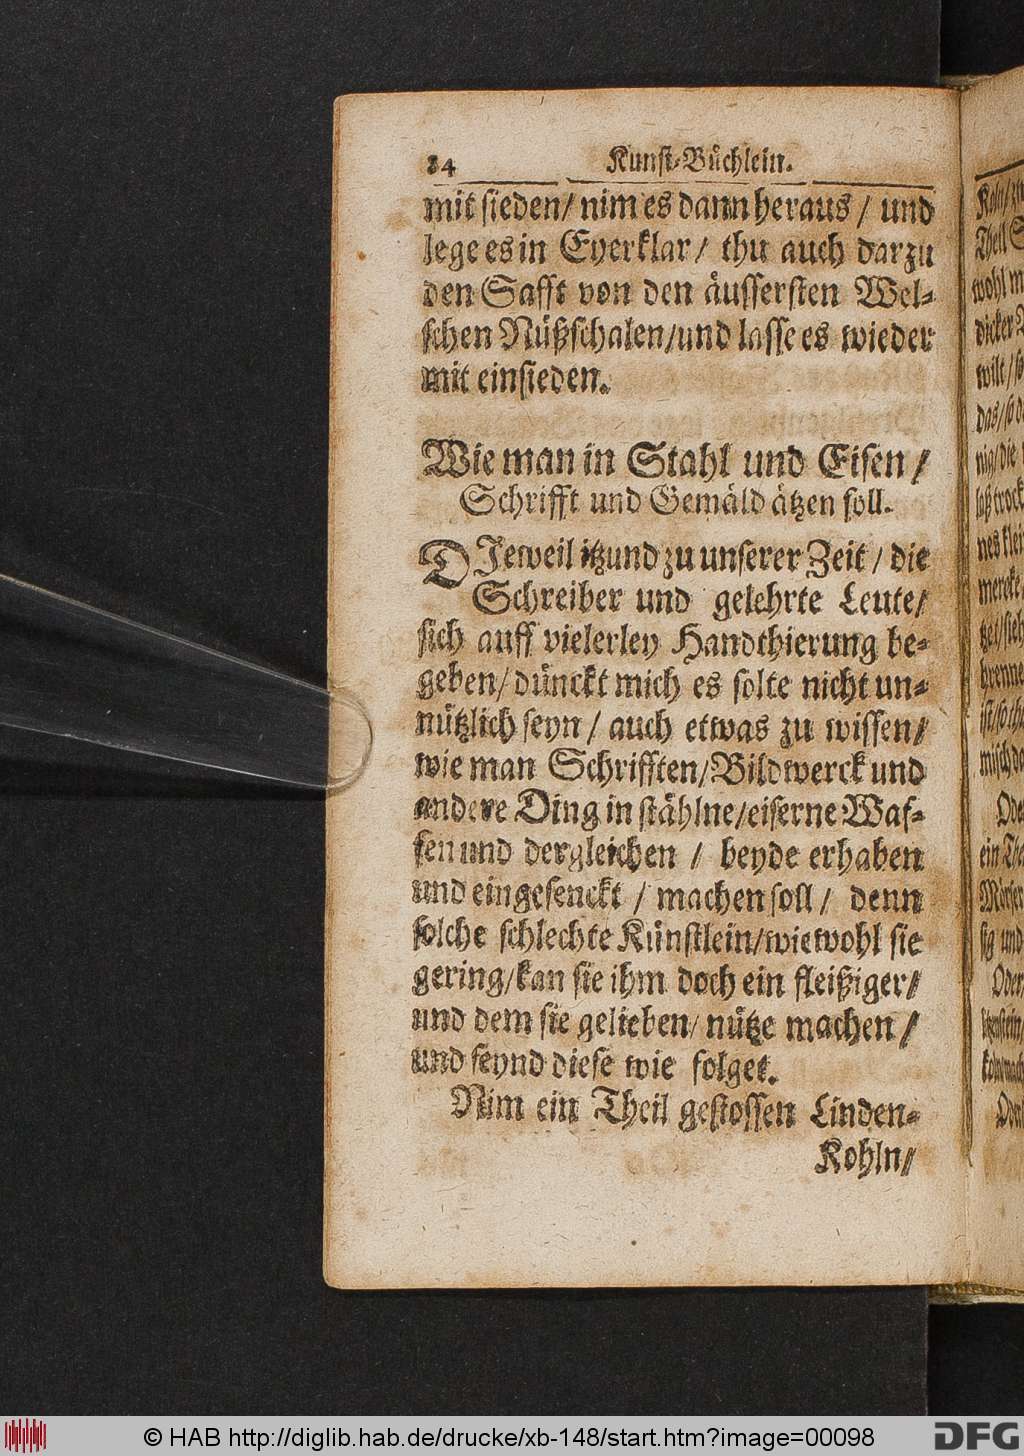 84 Kunst-Büchlein.
mit sieden/ nim es dann heraus / und
lege es in Eyerklar / thu auch darzu
den Safft von den äussersten Wel-
schen Nüßschalen/und lasse es wieder
mit einsieden.
Wie man in Stahl und Eisen /
Schrifft und Gemäld ätzen soll.
DJeweil itzund zu unserer Zeit / die
Schreiber und gelehrte Leute/
sich auff vielerley Handthierung be-
geben/ dünckt mich es solte nicht un-
nützlich seyn / auch etwas zu wissen/
wie man Schrifften/Bildwerck und
andere Ding in stählne/eiserne Waf-
fen und dergleichen / beyde erhaben
und eingesenckt / machen soll / denn
solche schlechte Künstlein/wiewohl sie
gering/kan sie ihm doch ein fleißiger/
und dem sie gelieben/ nütze machen /
und seynd diese wie folget.
Nim ein Theil gestossen Linden-
Kohln/
© HAB http://diglib.hab.de/drucke/xb-148/start.htm?image=00098
DFG